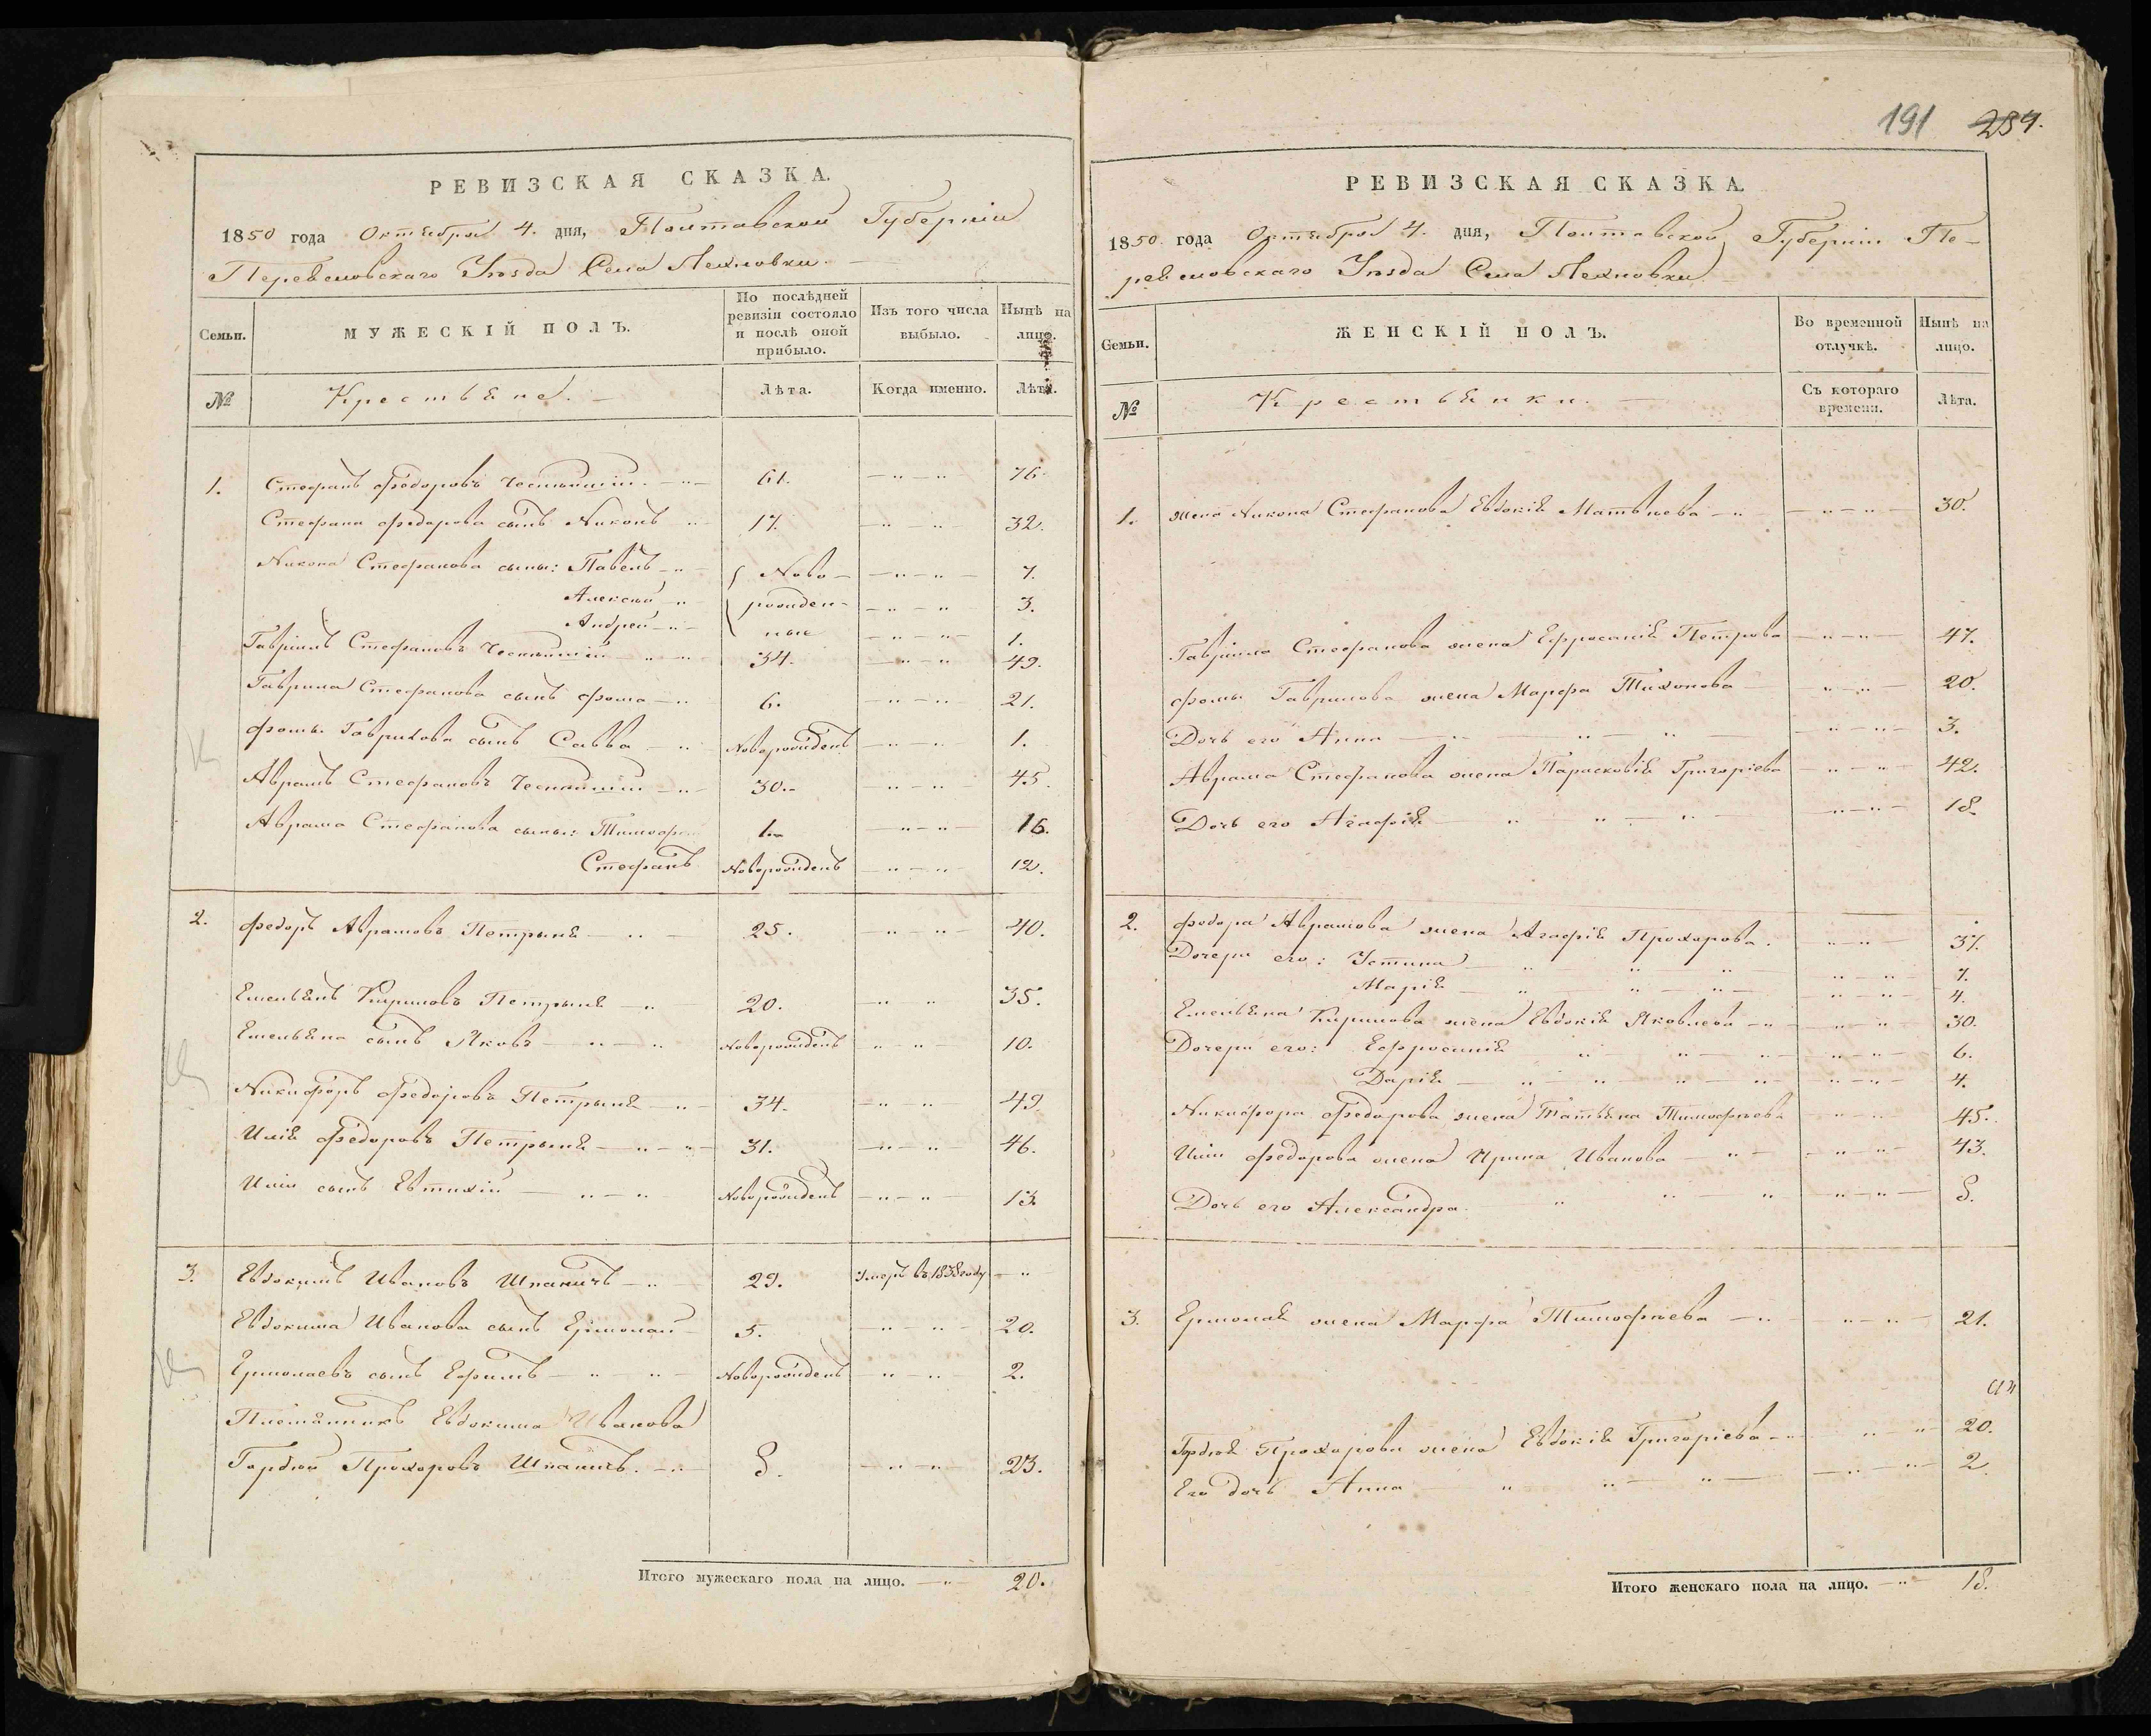 РЕВИЗСКАЯ СКАЗКА.
1850 года Октября 4. дня, Полтавской Губерніи
Переяславскаго Уѣзда Села Лехновки.
Семьи. МУЖЕСКІЙ ПОЛЪ. По послѣдней ревизіи состояло и послѣ оной прибыло. Изъ того числа выбыло. Нынѣ на лицо.
№ Крестьяне. Лѣта. Когда именно. Лѣта.
1. Стефанъ Федоровъ 61. 76.
Стефана Федорова сынъ Никонъ 17. 32.
Никона Стефанова сыны: Павелъ Ново- 7.
Алексѣй рожден- 3.
Андрей ные 1.
Гавріилъ Стефановъ 34. 49.
Гаврила Стефанова сынъ Фома 6. 21.
Фомы Гаврилова сынъ Савва Новорожденъ 1.
Аврамъ Стефановъ 30. 45.
Аврама Стефанова сыны: Тимофей 1. 16.
Стефанъ Новорожденъ 12.
2. Федоръ Аврамовъ Петрыня 25. 40.
Емельянъ Кириловъ Петрыня 20. 35.
Емельяна сынъ Яковъ Новорожденъ 10.
Никифоръ Федоровъ Петрыня 34. 49.
Илія Федоровъ Петрыня 31. 46.
Иліи сынъ Евтихій Новорожденъ 13.
3. Евдокимъ Ивановъ Шпаничъ 29. Умеръ въ 1838 году
Евдокима Иванова сынъ Ермолай 5. 20.
Ермолаевъ сынъ Ефимъ Новорожденъ 2.
Племянникъ Евдокима Иванова
Гордѣй Прохоровъ Шпаничъ. 8. 23.
Итого мужескаго пола на лицо. 20.
191 287.
РЕВИЗСКАЯ СКАЗКА.
1850 года Октября 4. дня, Полтавской Губерніи Пе-
реяславскаго Уѣзда Села Лехновки
Семьи. ЖЕНСКІЙ ПОЛЪ. Во временной отлучкѣ. Нынѣ на лицо.
№ Крестьянки. Съ котораго времени. Лѣта.
1. жена Никона Стефанова Евдокія Матвѣева 30.
Гавріила Стефанова жена Ефросинія Петрова 47.
Фомы Гаврилова жена Марфа Тихонова 20.
Дочь его Анна 3.
Аврама Стефанова жена Парасковія Григоріева 42.
Дочь его Агафія 18.
2. Федора Аврамова жена Агафія Прохорова. 37.
Дочери его: Устина 7.
Марія 4.
Емельяна Кирилова жена Евдокія Яковлева 30.
Дочери его: Ефросинія 6.
Дарія 4.
Никифора Федорова жена Татьяна Тимофѣева 45.
Иліи Федорова жена Ирина Иванова 43.
Дочь его Александра 8.
3. Ермолая жена Марфа Тимофѣева 21.
Гордѣя Прохорова жена Евдокія Григоріева 20.
Его дочь Анна 2.
Итого женскаго пола на лицо. 18.